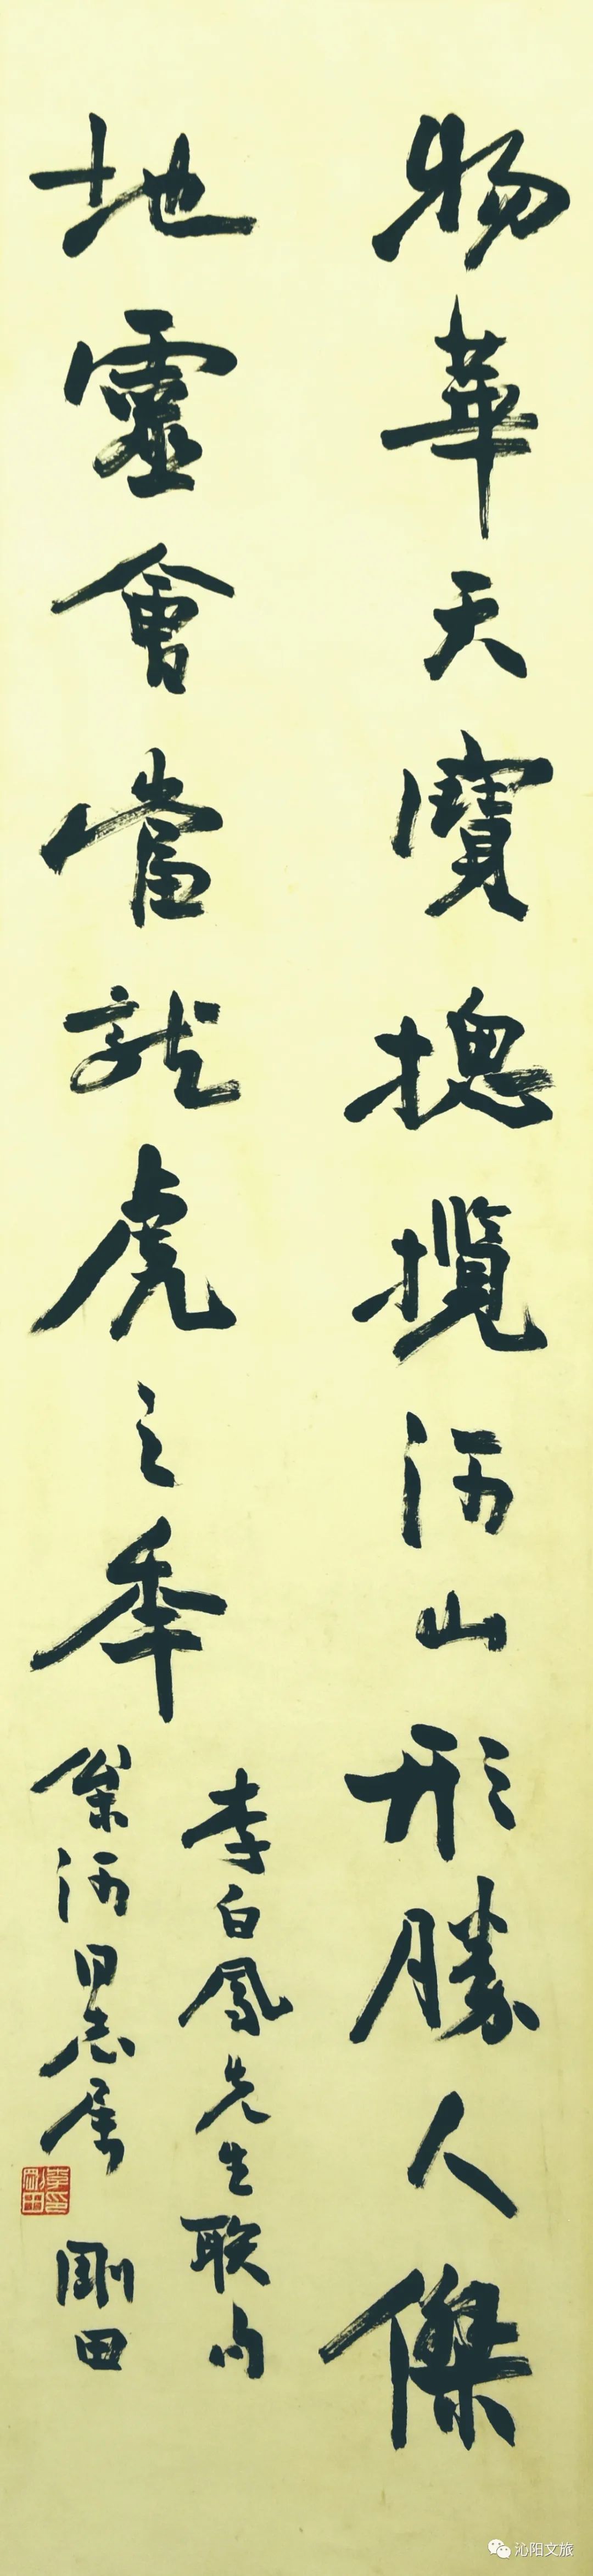 物華天寶揔攬河山形勝人傑
地靈會當龍虎之秊
李白鳳先生联句
河同志属 剛田
沁阳文旅